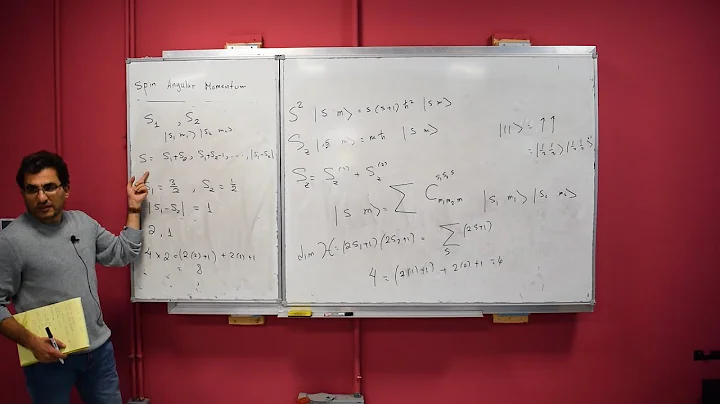 Spin Angular Momentum
S₁ , S₂
|S₁ m₁⟩ |S₂ m₂⟩
S = S₁+S₂, S₁+S₂-1, ..., |S₁-S₂|
₁ = 3/2 , S₂ = 1/2
|S₁-S₂| = 1
2, 1
4 × 2 = (2(2)+1) + 2(1)+1
= 8
S² |S m⟩ = s(s+1) ħ² |S m⟩
S_z |S m⟩ = mħ |S m⟩
S_z = S_z⁽¹⁾ + S_z⁽²⁾
|S m⟩ = ∑ C^{S₁ S₂ S}_{m₁ m₂ m} |S₁ m₁⟩ |S₂ m₂⟩
dim H = (2S₁+1)(2S₂+1) = ∑_S (2S+1)
4 = (2(1)+1) + 2(0)+1 = 4
|11⟩ = ↑↑
= |1/2 1/2⟩ |1/2 1/2⟩